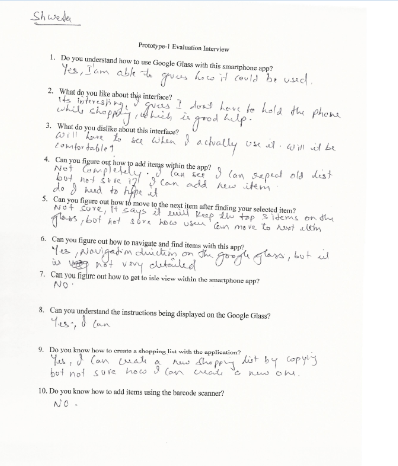 Shweda
Prototype-1 Evaluation Interview
1. Do you understand how to use Google Glass with this smartphone app?
Yes, I am able to guess how it could be used.
2. What do you like about this interface?
Its interesting, I guess I dont have to hold the phone
while shopping, which is good help.
3. What do you dislike about this interface?
Will have to see when I actually use it. will it be
comfortable?
4. Can you figure out how to add items within the app?
Not completely. I can see I can repeat old list
but not sure if I can add new item.
do I need to type it
5. Can you figure out how to move to the next item after finding your selected item?
Not sure, It says it will keep the top 3 items on the
glass, but not sure how user can move to next item
6. Can you figure out how to navigate and find items with this app?
Yes, Navigation direction on the google glass, but it
is not very detailed
7. Can you figure out how to get to isle view within the smartphone app?
NO.
8. Can you understand the instructions being displayed on the Google Glass?
Yes, I can
9. Do you know how to create a shopping list with the application?
Yes, I can create a new shopping list by copying
but not sure how I can create a new one.
10. Do you know how to add items using the barcode scanner?
NO.